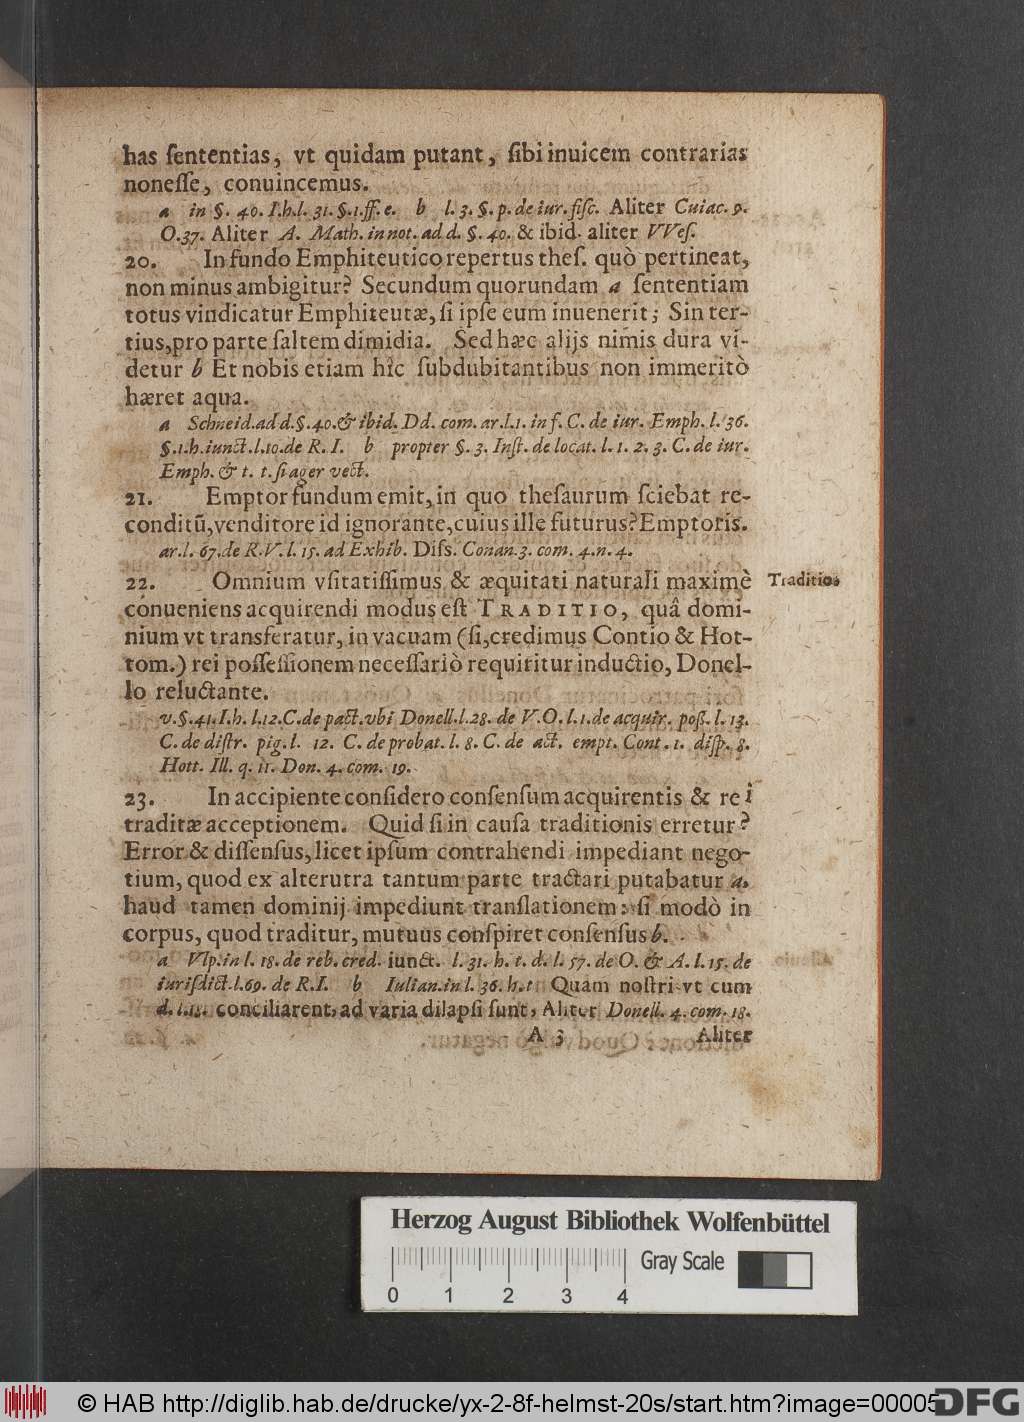 has ſententias, vt quidam putant, ſibi inuicem contrarias
non eſſe, conuincemus.
a in §. 40. I. h. l. 31. §. 1. ff. e. b l. 3. §. p. de iur. fiſc. Aliter Cuiac. 9.
O. 37. Aliter A. Math. in not. ad d. §. 40. & ibid. aliter VVeſ.
20. In fundo Emphiteutico repertus theſ. quò pertineat,
non minus ambigitur? Secundum quorundam a ſententiam
totus vindicatur Emphiteutæ, ſi ipſe eum inuenerit; Sin ter-
tius, pro parte ſaltem dimidia. Sed hæc alijs nimis dura vi-
detur b Et nobis etiam hîc ſubdubitantibus non immeritò
hæret aqua.
a Schneid. ad d. §. 40. & ibid. Dd. com. ar. l. 1. in f. C. de iur. Emph. l. 36.
§. 1. h. iunct. l. 10. de R. I. b propter §. 3. Inſt. de locat. l. 1. 2. 3. C. de iur.
Emph. & t. t. ſi ager vect.
21. Emptor fundum emit, in quo theſaurum ſciebat re-
conditū, venditore id ignorante, cuius ille futurus? Emptoris.
ar. l. 67. de R. V. l. 15. ad Exhib. Diſs. Conan. 3. com. 4. n. 4.
22. Omnium vſitatiſſimus & æquitati naturali maximè
Traditio.
conueniens acquirendi modus eſt TRADITIO, quâ domi-
nium vt transferatur, in vacuam (ſi, credimus Contio & Hot-
tom.) rei poſſeſſionem neceſſariò requiritur inductio, Donel-
lo reluctante.
v. §. 41. I. h. l. 12. C. de pact. vbi Donell. l. 28. de V. O. l. 1. de acquir. poß. l. 13.
C. de diſtr. pig. l. 12. C. de probat. l. 8. C. de act. empt. Cont. 1. diſp. 8.
Hott. Ill. q. 11. Don. 4. com. 19.
23. In accipiente conſidero conſenſum acquirentis & rei
traditæ acceptionem. Quid ſi in cauſa traditionis erretur?
Error & diſſenſus, licet ipſum contrahendi impediant nego-
tium, quod ex alterutra tantum parte tractari putabatur a,
haud tamen dominij impediunt translationem: ſi modò in
corpus, quod traditur, mutuus conſpiret conſenſus b.
a Vlp. in l. 18. de reb. cred. iunct. l. 31. h. t. d. l. 57. de O. & A. l. 15. de
iuriſdict. l. 69. de R. I. b Iulian. in l. 36. h. t Quàm noſtri vt cum
d. l. 18. conciliarent, ad varia dilapſi ſunt, Aliter Donell. 4. com. 18.
A 3 Aliter
Herzog August Bibliothek Wolfenbüttel
Gray Scale
0 1 2 3 4
© HAB http://diglib.hab.de/drucke/yx-2-8f-helmst-20s/start.htm?image=00005
DFG